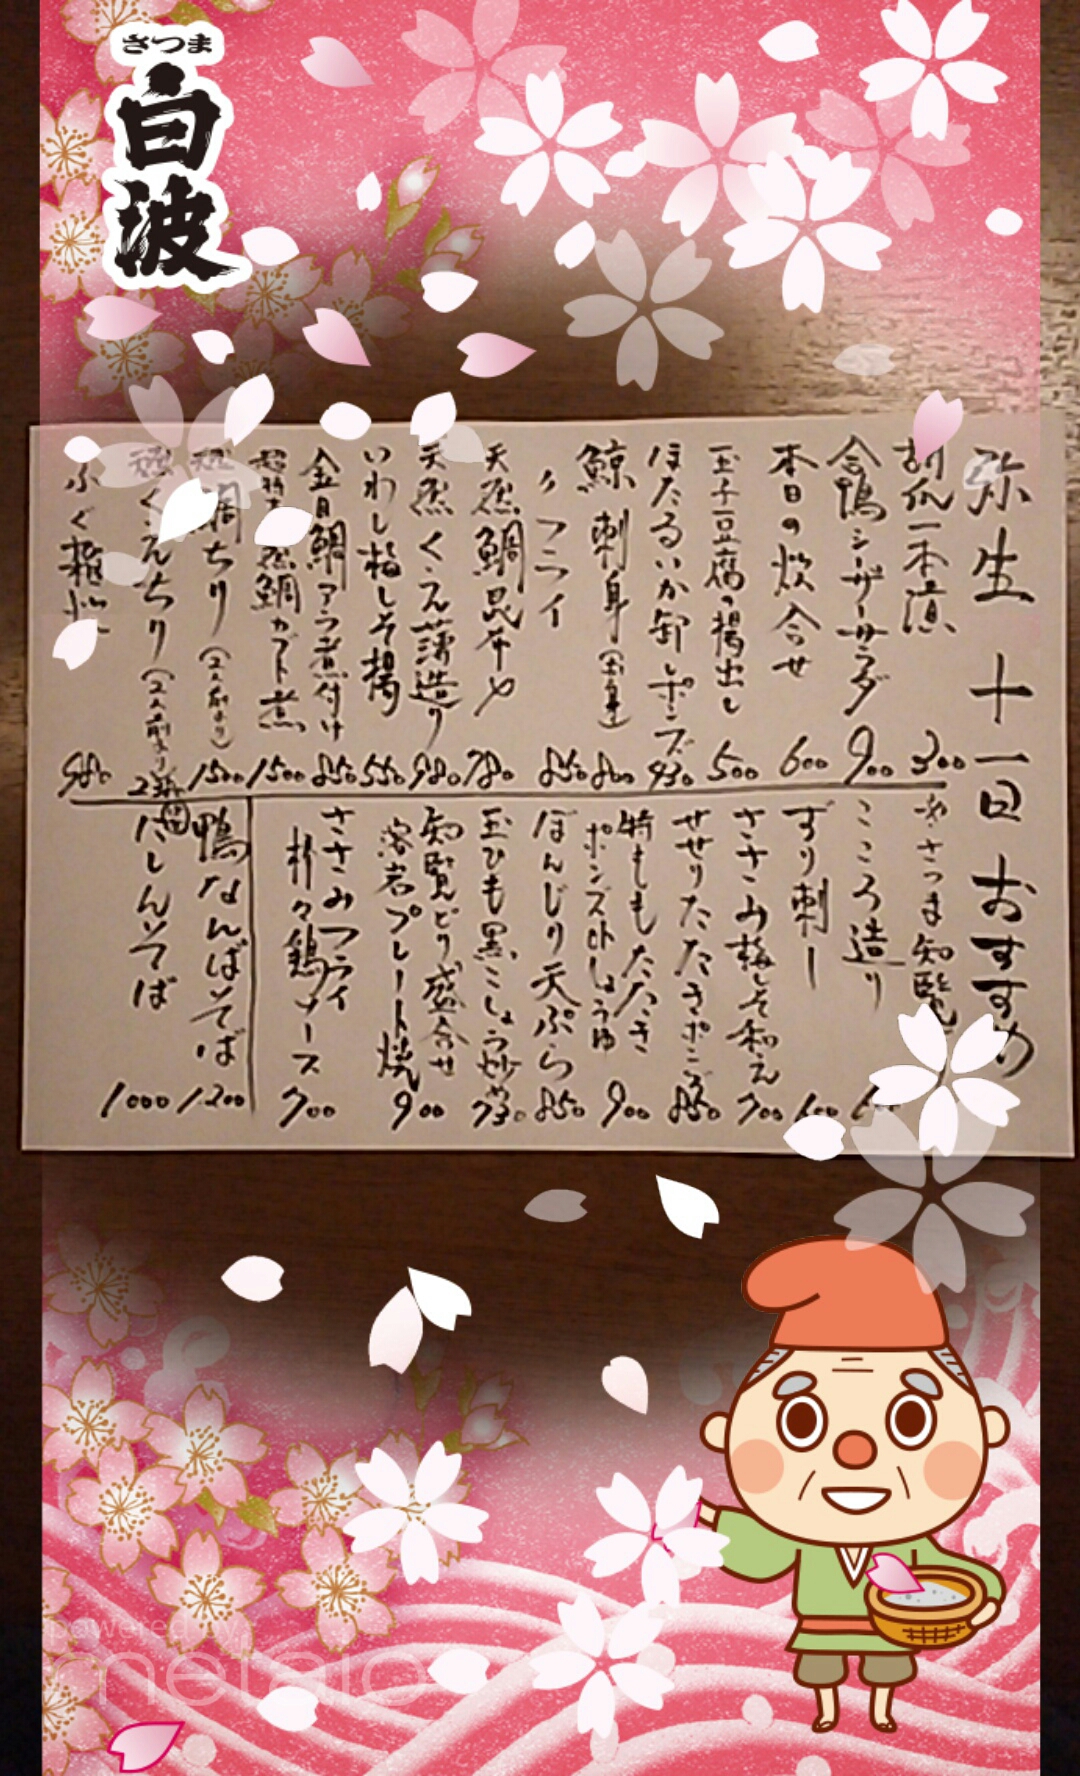 さつま
白波
弥生 十一日 おすすめ
胡瓜一本漬 300
合鴨シーザーサラダ 900
本日の炊合せ 600
玉子豆腐の揚出し 500
ほたるいか卸しポンズ 930
鯨 刺身 800
〃 フライ 850
天然 鯛昆布〆 780
天然 くえ薄造り 980
いわし梅しそ揚 550
金目鯛アラ煮付け 850
天然鯛カブト煮 1500
鯛ちり(2人前より) 1500
くえちり(2人前より)
ふぐ 980
さつま知覧
こころ造り
ずり刺し 600
ささみ梅しそ和え 700
せせりたたきポンズ 850
特ももたたき
ポンズorしょうゆ 900
ぼんじり天ぷら 850
玉ひも黒こしょう炒め 730
知覧どり盛合せ
溶岩プレート焼 900
ささみフライ
朴々鶏ソース 700
鴨なんばそば 1200
にしんそば 1000
powered by
metaio